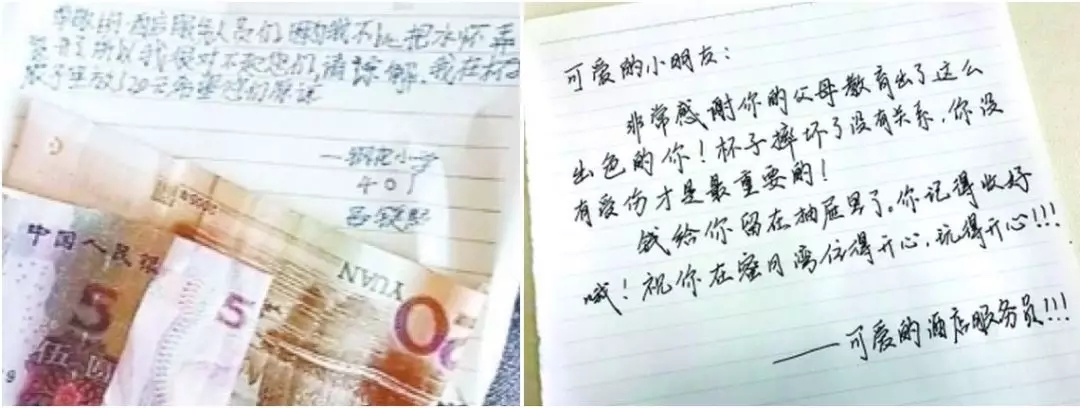 酒店服务人员们因为我不小心把水杯弄
所以我很对不起您们,请谅解.我在杯
——钢花小学
401
中国人民银
5
伍
5
YUAN
可爱的小朋友:
非常感谢你的父母教育出了这么
出色的你!杯子摔坏了没有关系,你没
有受伤才是最重要的!
钱给你留在抽屉里了。你记得收好
哦!祝你在蜜月湾住得开心,玩得开心!!!
——可爱的酒店服务员!!!